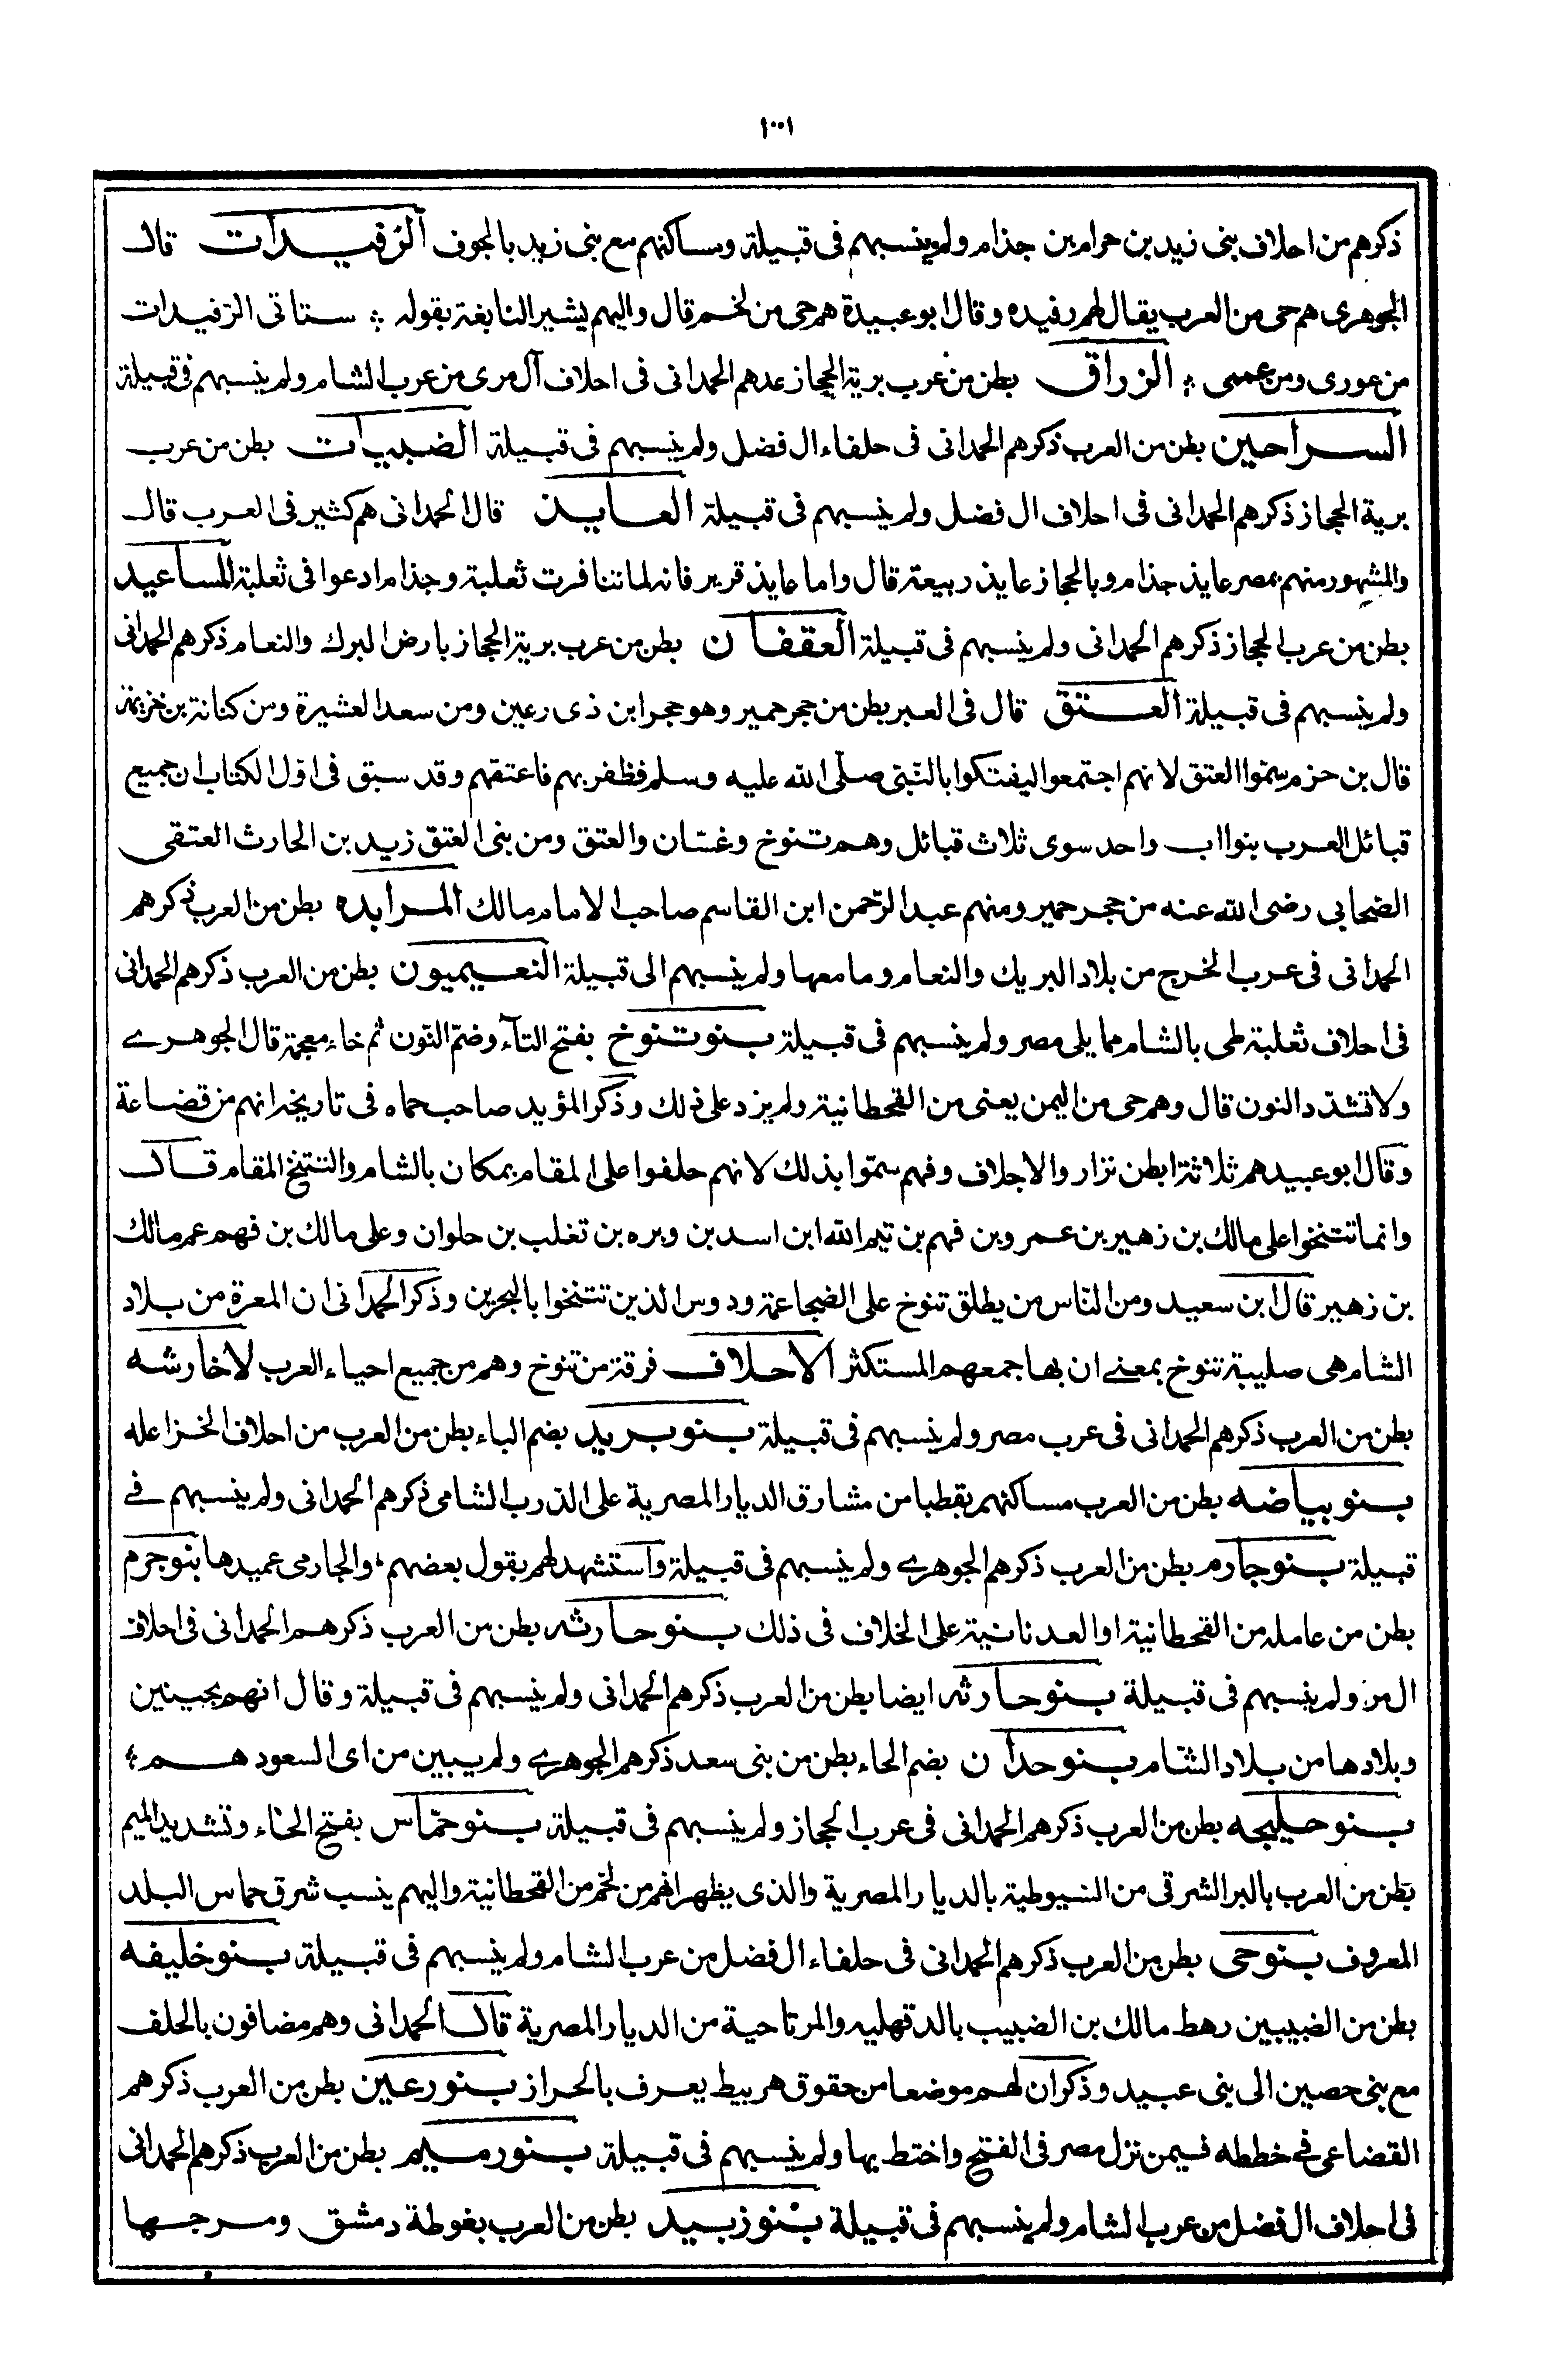 ١٠٠١
ذكرهم من احلاف بنى زبيد بن حرام بن جذام ولم ينسبهم فى قبيلة ومساكنهم مع بنى زيد بالجوف الرفيدات قال
الجوهرى هم حى من العرب يقال لهم رفيده وقال ابو عبيدة هم حى من لخم قال واليهم يشير النابغة بقوله ؞ ستاتى الرفيدات
من عورى ومن عمى ؞ الزراق بطن من عرب برية الحجاز عدهم الحمدانى فى احلاف آل مرى من عرب الشام ولم ينسبهم فى قبيلة
السراحين بطن من العرب ذكرهم الحمدانى فى حلفاء ال فضل ولم ينسبهم فى قبيلة الضبيبات بطن من عرب
برية الحجاز ذكرهم الحمدانى فى احلاف ال فضل ولم ينسبهم فى قبيلة العايذ قال الحمدانى هم كثير فى العرب قال
والمشهور منهم بمصر عايذ جذام وبالحجاز عايذ ربيعة قال واما عايذ قرير فانه لما تنافرت ثعلبة وجذام ادعوا فى ثعلبة المساعيد
بطن من عرب الحجاز ذكرهم الحمدانى ولم ينسبهم فى قبيلة العقفان بطن من عرب برية الحجاز بارض البرك والنعام ذكرهم الحمدانى
ولم ينسبهم فى قبيلة العتق قال فى العبر بطن من حجر حمير وهو حجر ابن ذى رعين ومن سعد العشيرة ومن كنانة بن خزيمة
قال بن حزم سمّوا العتق لانهم اجتمعوا ليفتكوا بالنّبىّ صلّى الله عليه وسلم فظفر بهم فاعتقهم وقد سبق فى اوّل الكتاب ان جميع
قبائل العرب بنوا اب واحد سوى ثلاث قبائل وهم تنوخ وغسّان والعتق ومن بنى العتق زيد بن الحارث العتقى
الصّحابى رضى الله عنه من حجر حمير ومنهم عبد الرّحمن ابن القاسم صاحب الامام مالك المرابده بطن من العرب ذكرهم
الحمدانى فى عرب الخرج من بلاد البريك والنعام وما معها ولم ينسبهم الى قبيلة النعيميون بطن من العرب ذكرهم الحمدانى
فى احلاف ثعلبة طى بالشام مما يلى مصر ولم ينسبهم فى قبيلة بنو تنوخ بفتح التآء وضمّ النّون ثم خاء معجمة قال الجوهرے
ولا تشدّد النون قال وهم حى من اليمن يعنى من القحطانية ولم يزد على ذلك وذكر المؤيد صاحب حماه فى تاريخه انهم من قضاعة
وقال ابو عبيد هم ثلاثة ابطن نزار والاجلاف وفهم سمّوا بذلك لانهم حلفوا على المقام بمكان بالشام والتنتخ المقام قال
وانما تتنخوا على مالك بن زهير بن عمرو بن فهم بن تيم الله ابن اسد بن وبره بن تغلب بن حلوان وعلى مالك بن فهم عم مالك
بن زهير قال ابن سعيد ومن النّاس من يطلق تنوخ على الضجاعمة ودوس الذين تتنخوا بالبحرين وذكر الحمدانى ان المعرة من بلاد
الشام هى صليبة تنوخ بمعنے ان بها جمعهم المستكثر الاحلاف فرقة من تنوخ وهم من جميع احياء العرب لاخارشه
بطن من العرب ذكرهم الحمدانى فى عرب مصر ولم ينسبهم فى قبيلة بنو بريد بضم الباء بطن من العرب من احلاف الخزاعله
بنو بياضه بطن من العرب مساكنهم بقطيا من مشارق الديار المصرية على الدّرب الشامى ذكرهم الحمدانى ولم ينسبهم فے
قبيلة بنو جارم بطن من العرب ذكرهم الجوهرے ولم ينسبهم فى قبيلة واستشهد لهم بقول بعضهم، والجارمى عميدها بنو جرم
بطن من عامله من القحطانية او العدنانية على الخلاف فى ذلك بنو حارثه بطن من العرب ذكرهم الحمدانى فى احلاف
ال مر ولم ينسبهم فى قبيلة بنو حارثه ايضا بطن من العرب ذكرهم الحمدانى ولم ينسبهم فى قبيلة وقال انهم بجينين
وبلادها من بلاد الشّام بنو حدان بضم الحاء بطن من بنى سعد ذكرهم الجوهرے ولم يبين من اى السعود هم ؛
بنو حليحه بطن من العرب ذكرهم الحمدانى فى عرب الحجاز ولم ينسبهم فى قبيلة بنو حمّاس بفتح الحاء وتشديد الميم
بطن من العرب بالبر الشرقى من السّيوطية بالديار المصرية والذى يظهر انهم من لخم من القحطانية واليهم ينسب شرق حماس البلد
المعروف بنو حى بطن من العرب ذكرهم الحمدانى فى حلفاء ال فضل من عرب الشام ولم ينسبهم فى قبيلة بنو خليفه
بطن من الضبيبين رهط مالك بن الضبيب بالدقهليه والمرتاحية من الديار المصرية قال الحمدانى وهم مضافون بالحلف
مع بنى حصين الى بنى عبيد وذكر ان لهم موضعا من حقوق هربيط يعرف بالحراز بنو رعين بطن من العرب ذكرهم
القضاعى فے خططه فيمن نزل مصر فى الفتح واختط بها ولم ينسبهم فى قبيلة بنو رميم بطن من العرب ذكرهم الحمدانى
فى احلاف ال فضل من عرب الشام ولم ينسبهم فى قبيلة بنو زبيد بطن من العرب بغوطة دمشق ومرجها